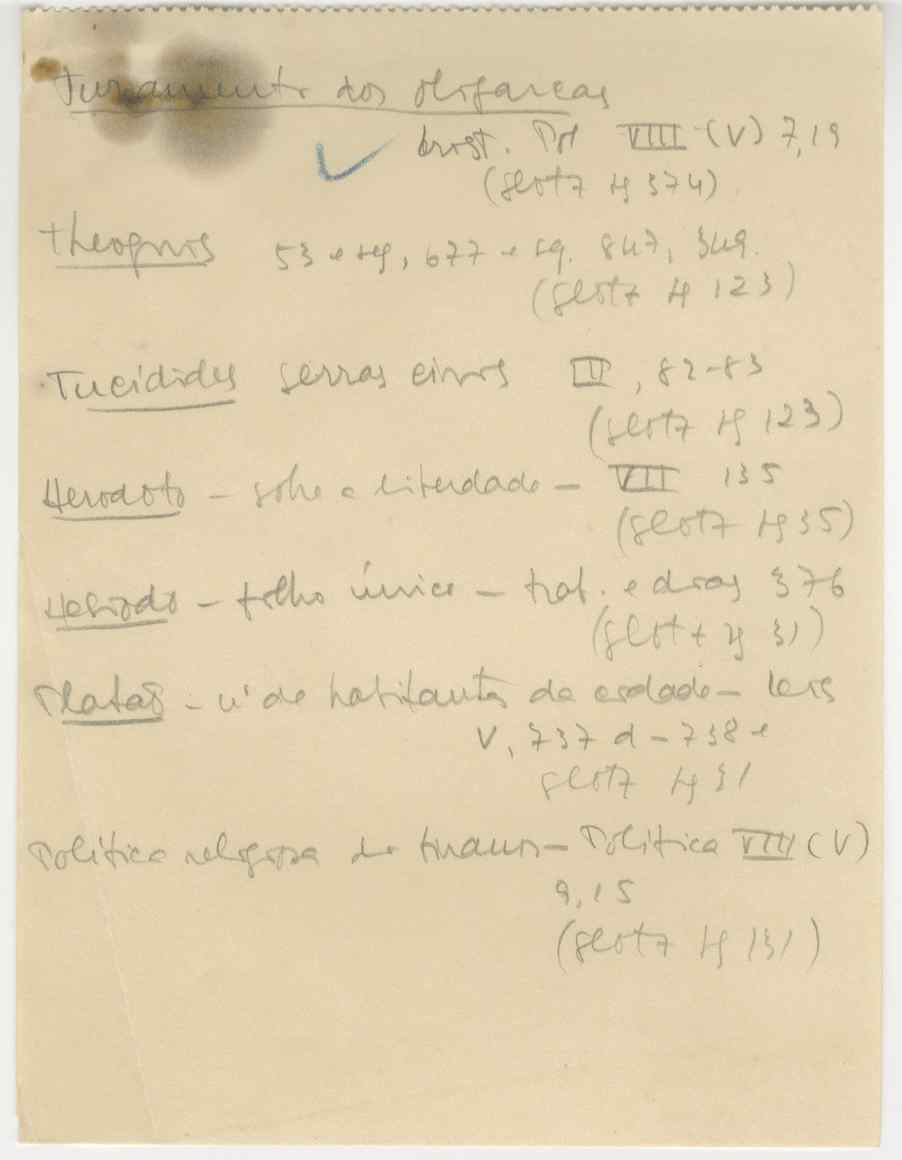 Juramento dos oligarcas
Arist. Pol VIII (V) 7,19
(Glotz pg 374)
Theognis 53 e sg, 677 e sq. 847, 349.
(Glotz pg 123)
Tucidides guerras civis III, 82-83
(Glotz pg 123)
Herodoto - sobre a liberdade - VII 135
(Glotz pg 35)
Hesiodo - filho único - trab. e dias 376
(Glotz pg 31)
Platão - nº de habitantes da cidade - Leis
V, 737 d - 738 e
Glotz pg 31
Politica religiosa do tirano - Politica VIII (V)
9,15
(Glotz pg 131)